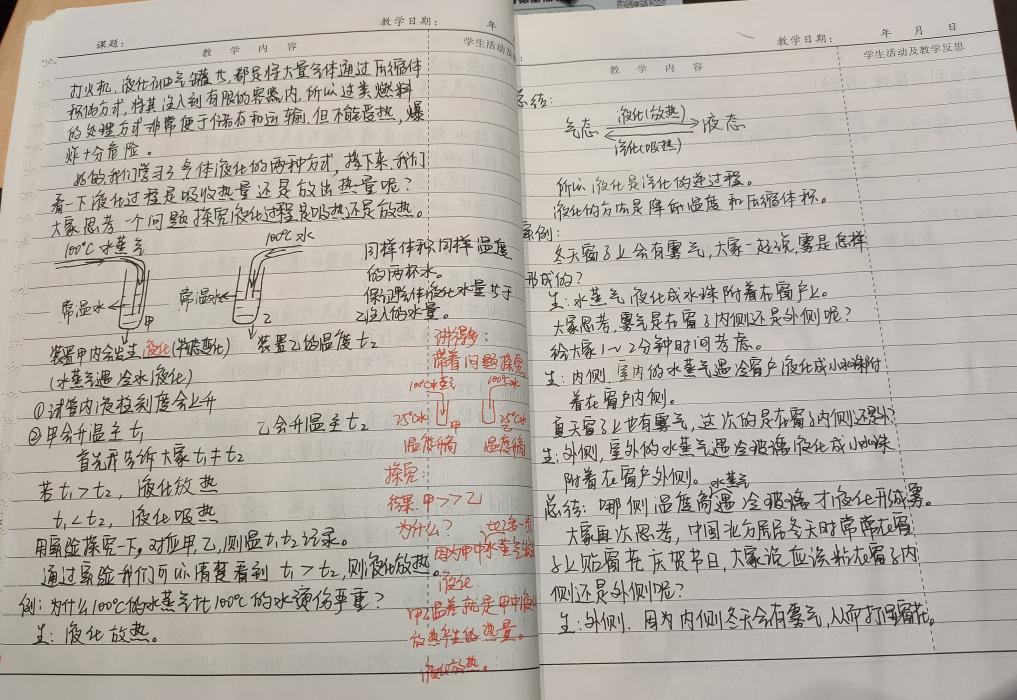 课题:
教学日期: 年
教 学 内 容
学生活动及
打火机,液化石油气罐等,都是将大量气体通过压缩体
积的方式,将其注入到有限的容器内,所以这类燃料
的处理方式非常便于储存和运输,但不能受热,爆
炸十分危险。
好的我们学习了气体液化的两种方式,接下来我们
看一下液化过程是吸收热量还是放出热量呢?
大家思考一个问题探究液化过程是吸热还是放热。
100℃水蒸气
100℃水
常温水
甲
常温水
乙
同样体积同样温度
的两杯水。
保证气体液化水量等于
乙注入的水量。
装置甲内会发生液化(物态变化)
装置乙的温度t2
(水蒸气遇冷水液化)
①试管内液柱刻度会上升
②甲会升温至t1
乙会升温至t2
首先告诉大家t1≠t2
若t1>t2,液化放热
t1<t2,液化吸热
用实验探究一下。对应甲、乙,测温t1t2记录。
通过实验我们可以清楚看到t1>t2,则液化放热。
例:为什么100℃的水蒸气比100℃的水烫伤严重?
生:液化放热。
讲得多:
带着问题探究
100℃水蒸气
100℃水
25℃水
甲
25℃水
乙
温度升高
温度升高
探究:
结果:甲>>乙
为什么?
比乙多一步
因为甲中水蒸气
液化
甲乙温差就是甲中液化
放热产生的热量。
液化放热。
教学日期: 年 月 日
教 学 内 容
学生活动及教学反思
总结:
液化(放热)
气态
液态
汽化(吸热)
所以液化是汽化的逆过程。
液化的方法是降低温度和压缩体积。
案例:
冬天窗子上会有雾气,大家一起说,雾是怎样
形成的?
生:水蒸气液化成水珠附着在窗户上。
大家思考,雾气是在窗子内侧还是外侧呢?
给大家1~2分钟时间考虑。
生:内侧,室内的水蒸气遇冷窗户液化成小水珠附
着在窗户内侧。
夏天窗子上也有雾气,这次的是在窗子内侧还是外?
生:外侧,屋外的水蒸气遇冷玻璃液化成小水珠
附着在窗户外侧。
水蒸气
总结:哪侧温度高遇冷玻璃才液化形成雾。
大家再次思考,中国北方居民冬天时常常在窗
子上贴窗花庆贺节日,大家说应该粘在窗子内
侧还是外侧呢?
生:外侧,因为内侧冬天会有雾气,从而打湿窗花。